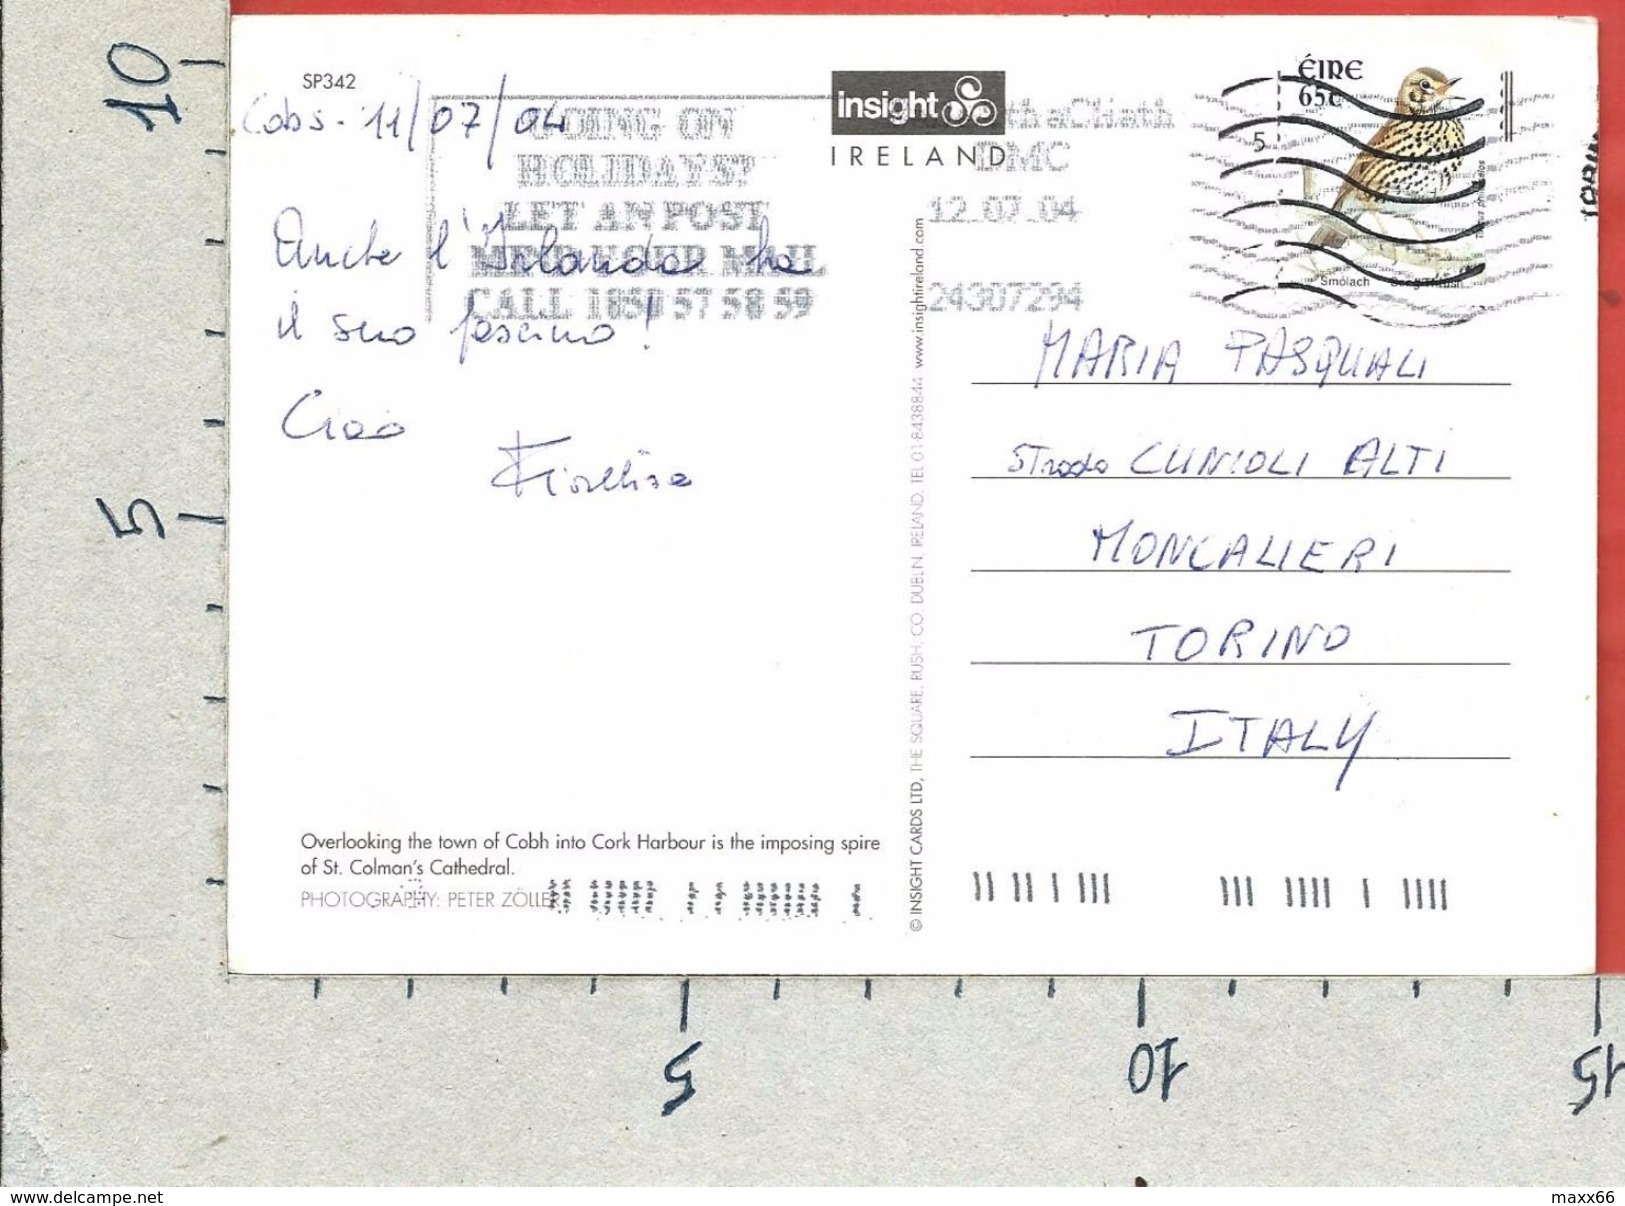 SP342
Cobs - 11/07/04
GOING ON
HOLIDAYS?
LET AN POST
MIND YOUR MAIL
CALL 1850 57 58 59
Anche l'Irlanda ha
il suo fascino!
Ciao
insight
IRELAND
DMC
12.07.04
24307294
ÉIRE
65c
5
Smólach
MARIA PASQUALI
Strada CUNIOLI ALTI
MONCALIERI
TORINO
ITALY
© INSIGHT CARDS LTD, THE SQUARE, RUSH, CO. DUBLIN, IRELAND. TEL 01-8438844 www.insightireland.com
Overlooking the town of Cobh into Cork Harbour is the imposing spire
of St. Colman's Cathedral.
PHOTOGRAPHY: PETER ZÖLLER
10
5
5
10
15
www.delcampe.net
maxx66